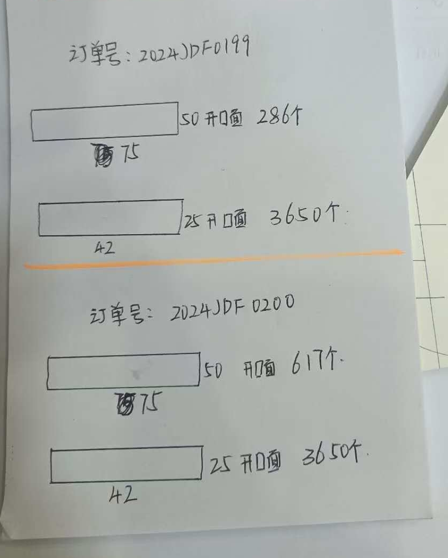 订单号: 2024JDF0199
50 开口面 286个
75
25 开口面 3650个
42
订单号: 2024JDF0200
50 开口面 617个.
75
25 开口面 3650个.
42